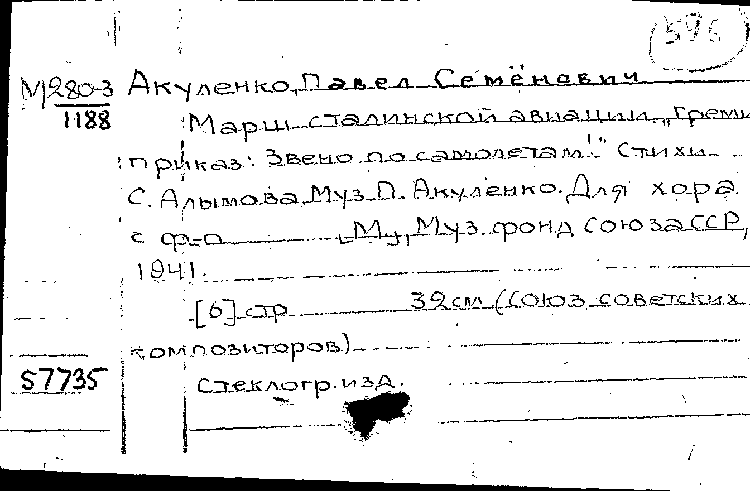 596
М280-3 Акуленко, Павел Семёнович
1188
Марш сталинской авиации. „Греми
приказ: Звено по самолетам!" Стихи
С. Алымова Муз П. Акуленко. Для хора
с ф-п М., Муз. фонд Союза ССР,
1941.
[6] стр 32 см (Союз советских
композиторов)
57735 стеклогр. изд.